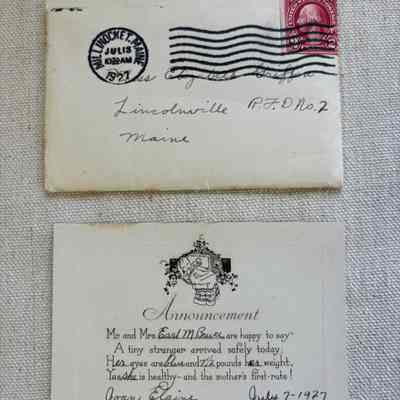 MILLINOCKET, MAINE
JUL 13
10 30 AM
1927
Lincolnville R.F.D No. 2
Maine
Announcement
Mr and Mrs Earl M are happy to say
A tiny stranger arrived safely today;
Her eyes are blue and 7½ pounds her weight,
Yes she is healthy- and the mother's first-rate!
Elaine July 7-1927